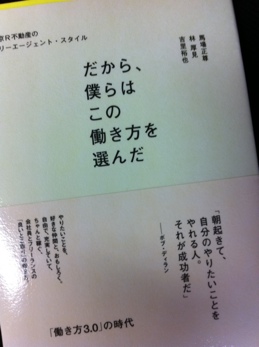 京R不動産の
リーエージェント・スタイル
だから、
僕らは
この
働き方を
選んだ
馬場正尊
林 厚見
吉里裕也
「朝起きて、
自分のやりたいことを
やれる人。
それが成功者だ」
──ボブ・ディラン
やりたいことを、
好きな仲間と、おもしろく。
自由で、充実していて、
ちゃんと稼ぐ。
会社員とフリーランスの
「働き方3.0」の時代